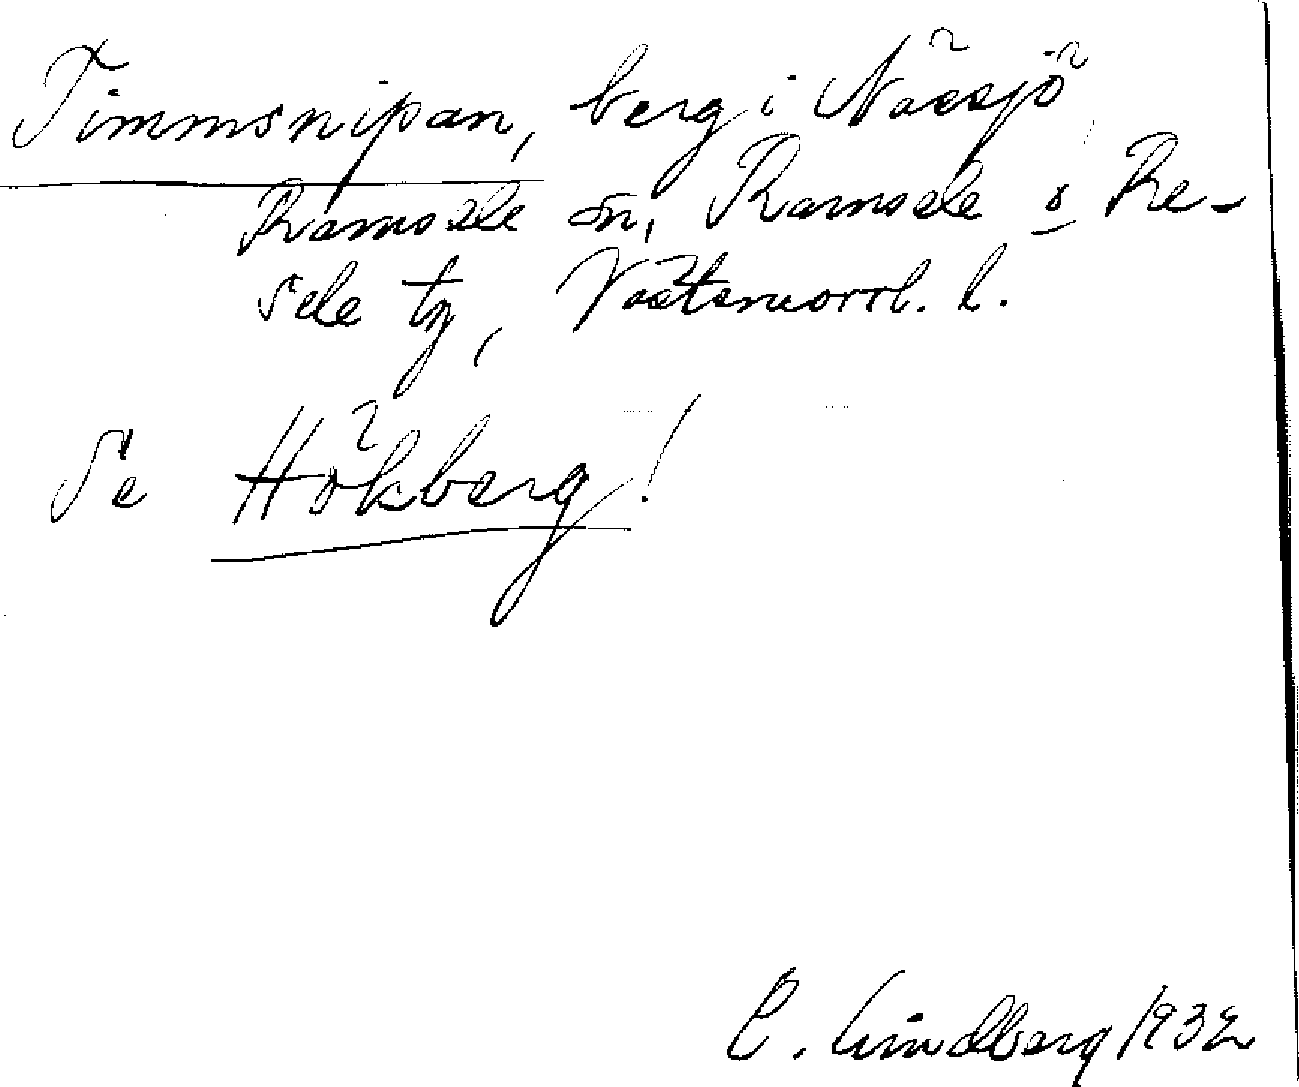 Timmsnipan, berg i Näsjö,
Ramsele sn, Ramsele o Re-
sele tg, Västernorrl. l.
Se Hökberg!
C. Lindberg 1932